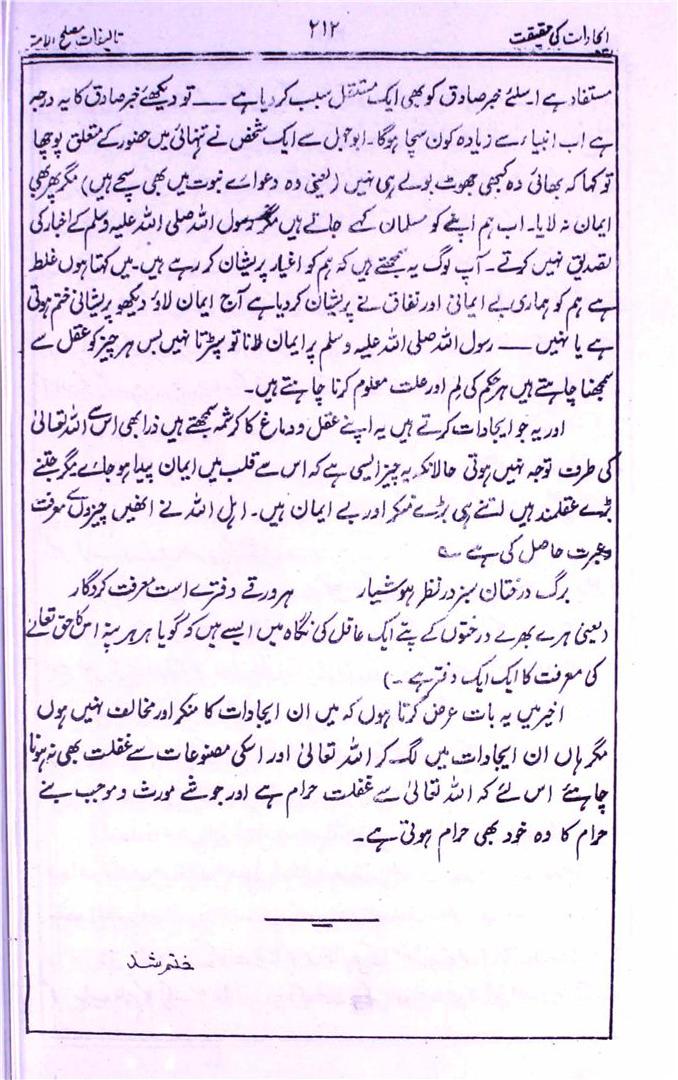 ایجادات کی حقیقت ۲۱۲ تالیفات مصلح الامۃ
مستفاد ہے اسلئے خبر صادق کو بھی ایک مستقل سبب کردیا ہے ــــ تو دیکھئے خبر صادق کا یہ درجہ
ہے اب انبیاء سے زیادہ کون سچا ہوگا۔ ابوجہل سے ایک شخص نے تنہائی میں حضور کے متعلق پوچھا
تو کہا کہ بھائی وہ کبھی جھوٹ بولے ہی نہیں (یعنی وہ دعوائے نبوت میں بھی سچے ہیں) مگر پھر بھی
ایمان نہ لایا۔ اب ہم اپنے کو مسلمان کہے جاتے ہیں مگر رسول اللہ صلی اللہ علیہ وسلم کے اخبار کی
تصدیق نہیں کرتے۔ آپ لوگ یہ سمجھتے ہیں کہ ہم کو اغیار پریشان کر رہے ہیں۔ میں کہتا ہوں غلط
ہے ہم کو ہماری بے ایمانی اور نفاق نے پریشان کردیا ہے آج ایمان لاؤ دیکھو پریشانی ختم ہوتی
ہے یا نہیں ــــ رسول اللہ صلی اللہ علیہ وسلم پر ایمان لانا تو پڑتا نہیں بس ہر چیز کو عقل سے
سمجھنا چاہتے ہیں ہر حکم کی لِم اور علت معلوم کرنا چاہتے ہیں۔
اور یہ جو ایجادات کرتے ہیں یہ اپنے عقل و دماغ کا کرشمہ سمجھتے ہیں ذرا بھی اس سے اللہ تعالیٰ
کی طرف توجہ نہیں ہوتی حالانکہ یہ چیز ایسی ہے کہ اس سے قلب میں ایمان پیدا ہو جائے مگر جتنے
بڑے عقلمند ہیں اتنے ہی بڑے منکر اور بے ایمان ہیں۔ اہل اللہ نے انھیں چیزوں سے معرفت
وعبرت حاصل کی ہے ؎
برگ درختان سبز در نظر ہوشیار ہر ورقے دفترے است معرفت کردگار
(یعنی ہرے بھرے درختوں کے پتے ایک عاقل کی نگاہ میں ایسے ہیں کہ گویا ہر ہر پتہ اس کا حق تعالےٰ
کی معرفت کا ایک ایک دفتر ہے۔)
اخیر میں یہ بات عرض کرتا ہوں کہ میں ان ایجادات کا منکر اور مخالف نہیں ہوں
مگر ہاں ان ایجادات میں لگ کر اللہ تعالیٰ اور اسکی مصنوعات سے غفلت بھی نہ ہونا
چاہئے اس لئے کہ اللہ تعالیٰ سے غفلت حرام ہے اور جو شے مورث و موجب بنے
حرام کا وہ خود بھی حرام ہوتی ہے۔
ختم شد